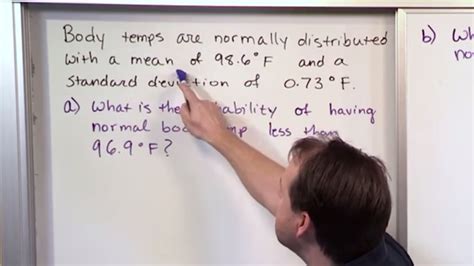 Body temps are normally distributed
with a mean of 98.6°F and a
standard deviation of 0.73°F.
a) What is the probability of having
normal body temp less than
96.9°F?
b) Wha